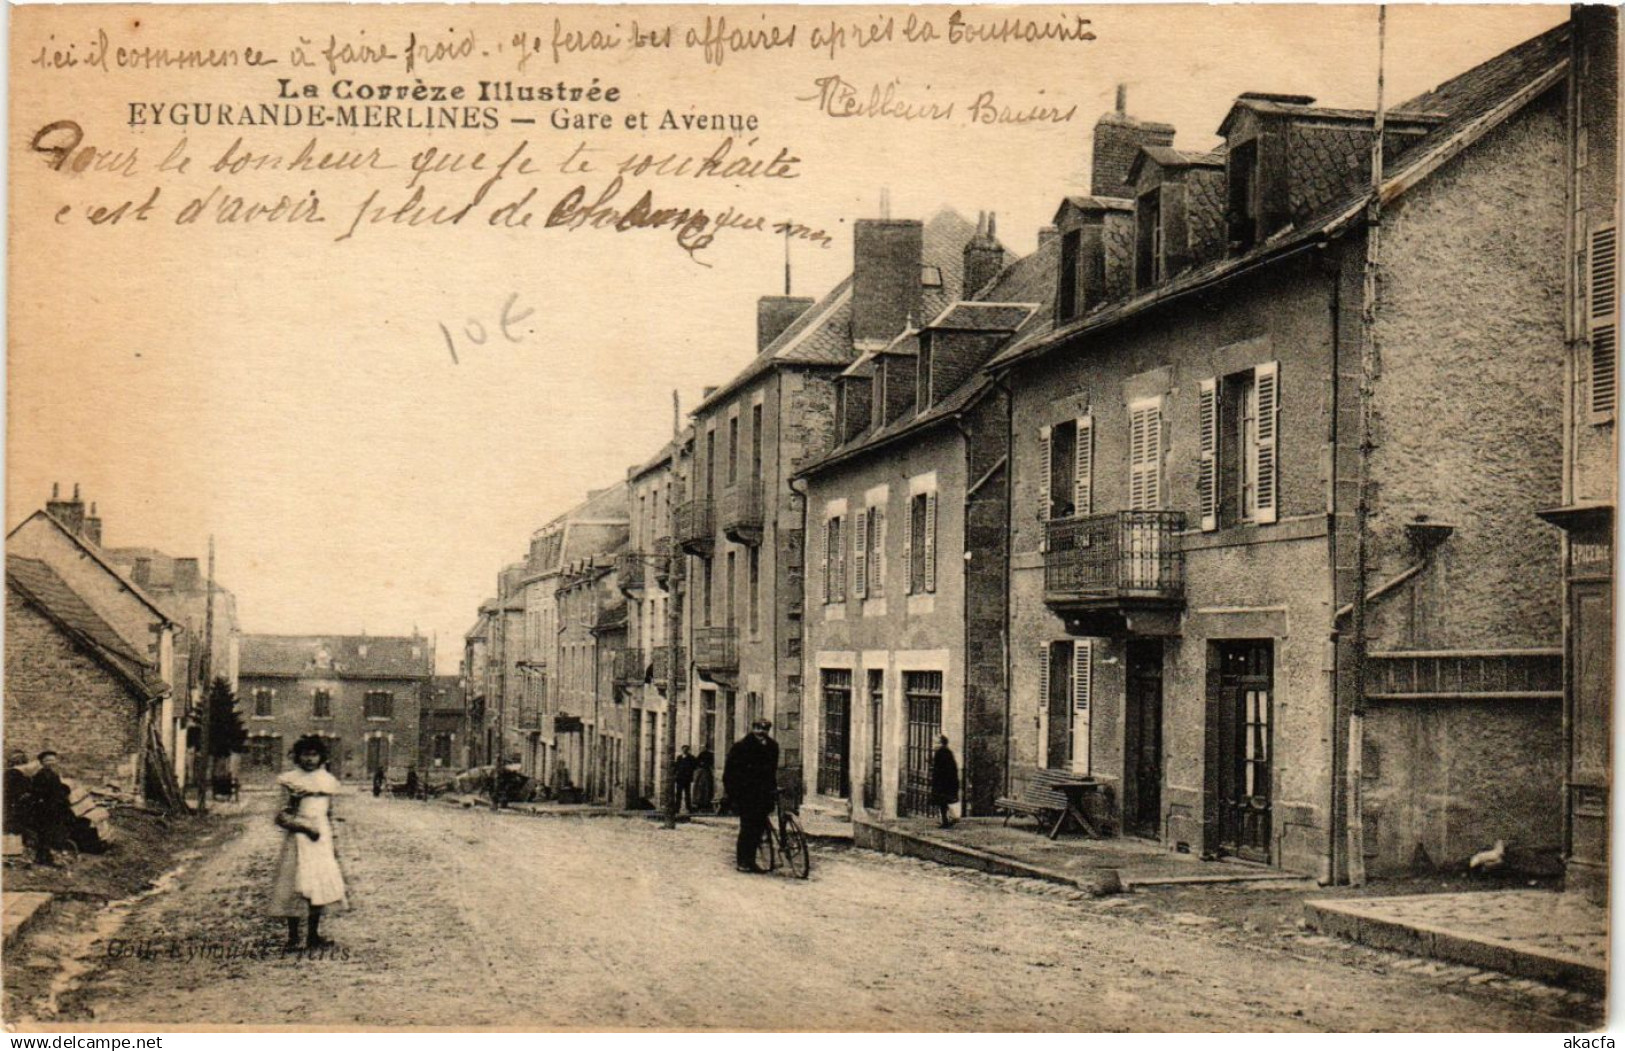 ici il commence à faire froid. je ferai tes affaires après la toussaint
La Corrèze Illustrée
Meilleurs Baisers
EYGURANDE-MERLINES — Gare et Avenue
Pour le bonheur que je te souhaite
c'est d'avoir plus de que moi
10€
EPICERIE
Coll. Eyboulet Frères
akacfa